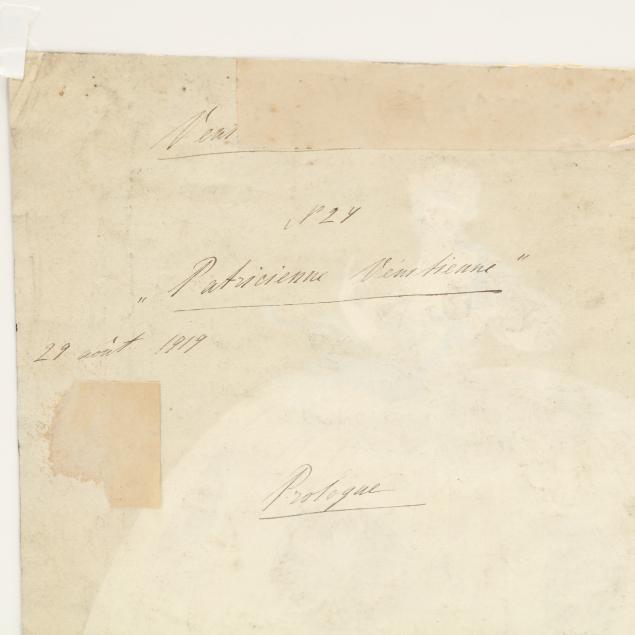 N 24
" Patricienne Vénitienne "
29 août 1919
Prologue